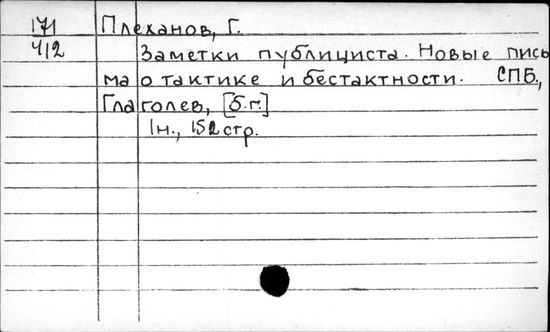 171 Плеханов, Г.
412
Заметки публициста. Новые пись
ма о тактике и бестактности. СПБ.,
Глаголев, [б.г.]
1н., 152 стр.